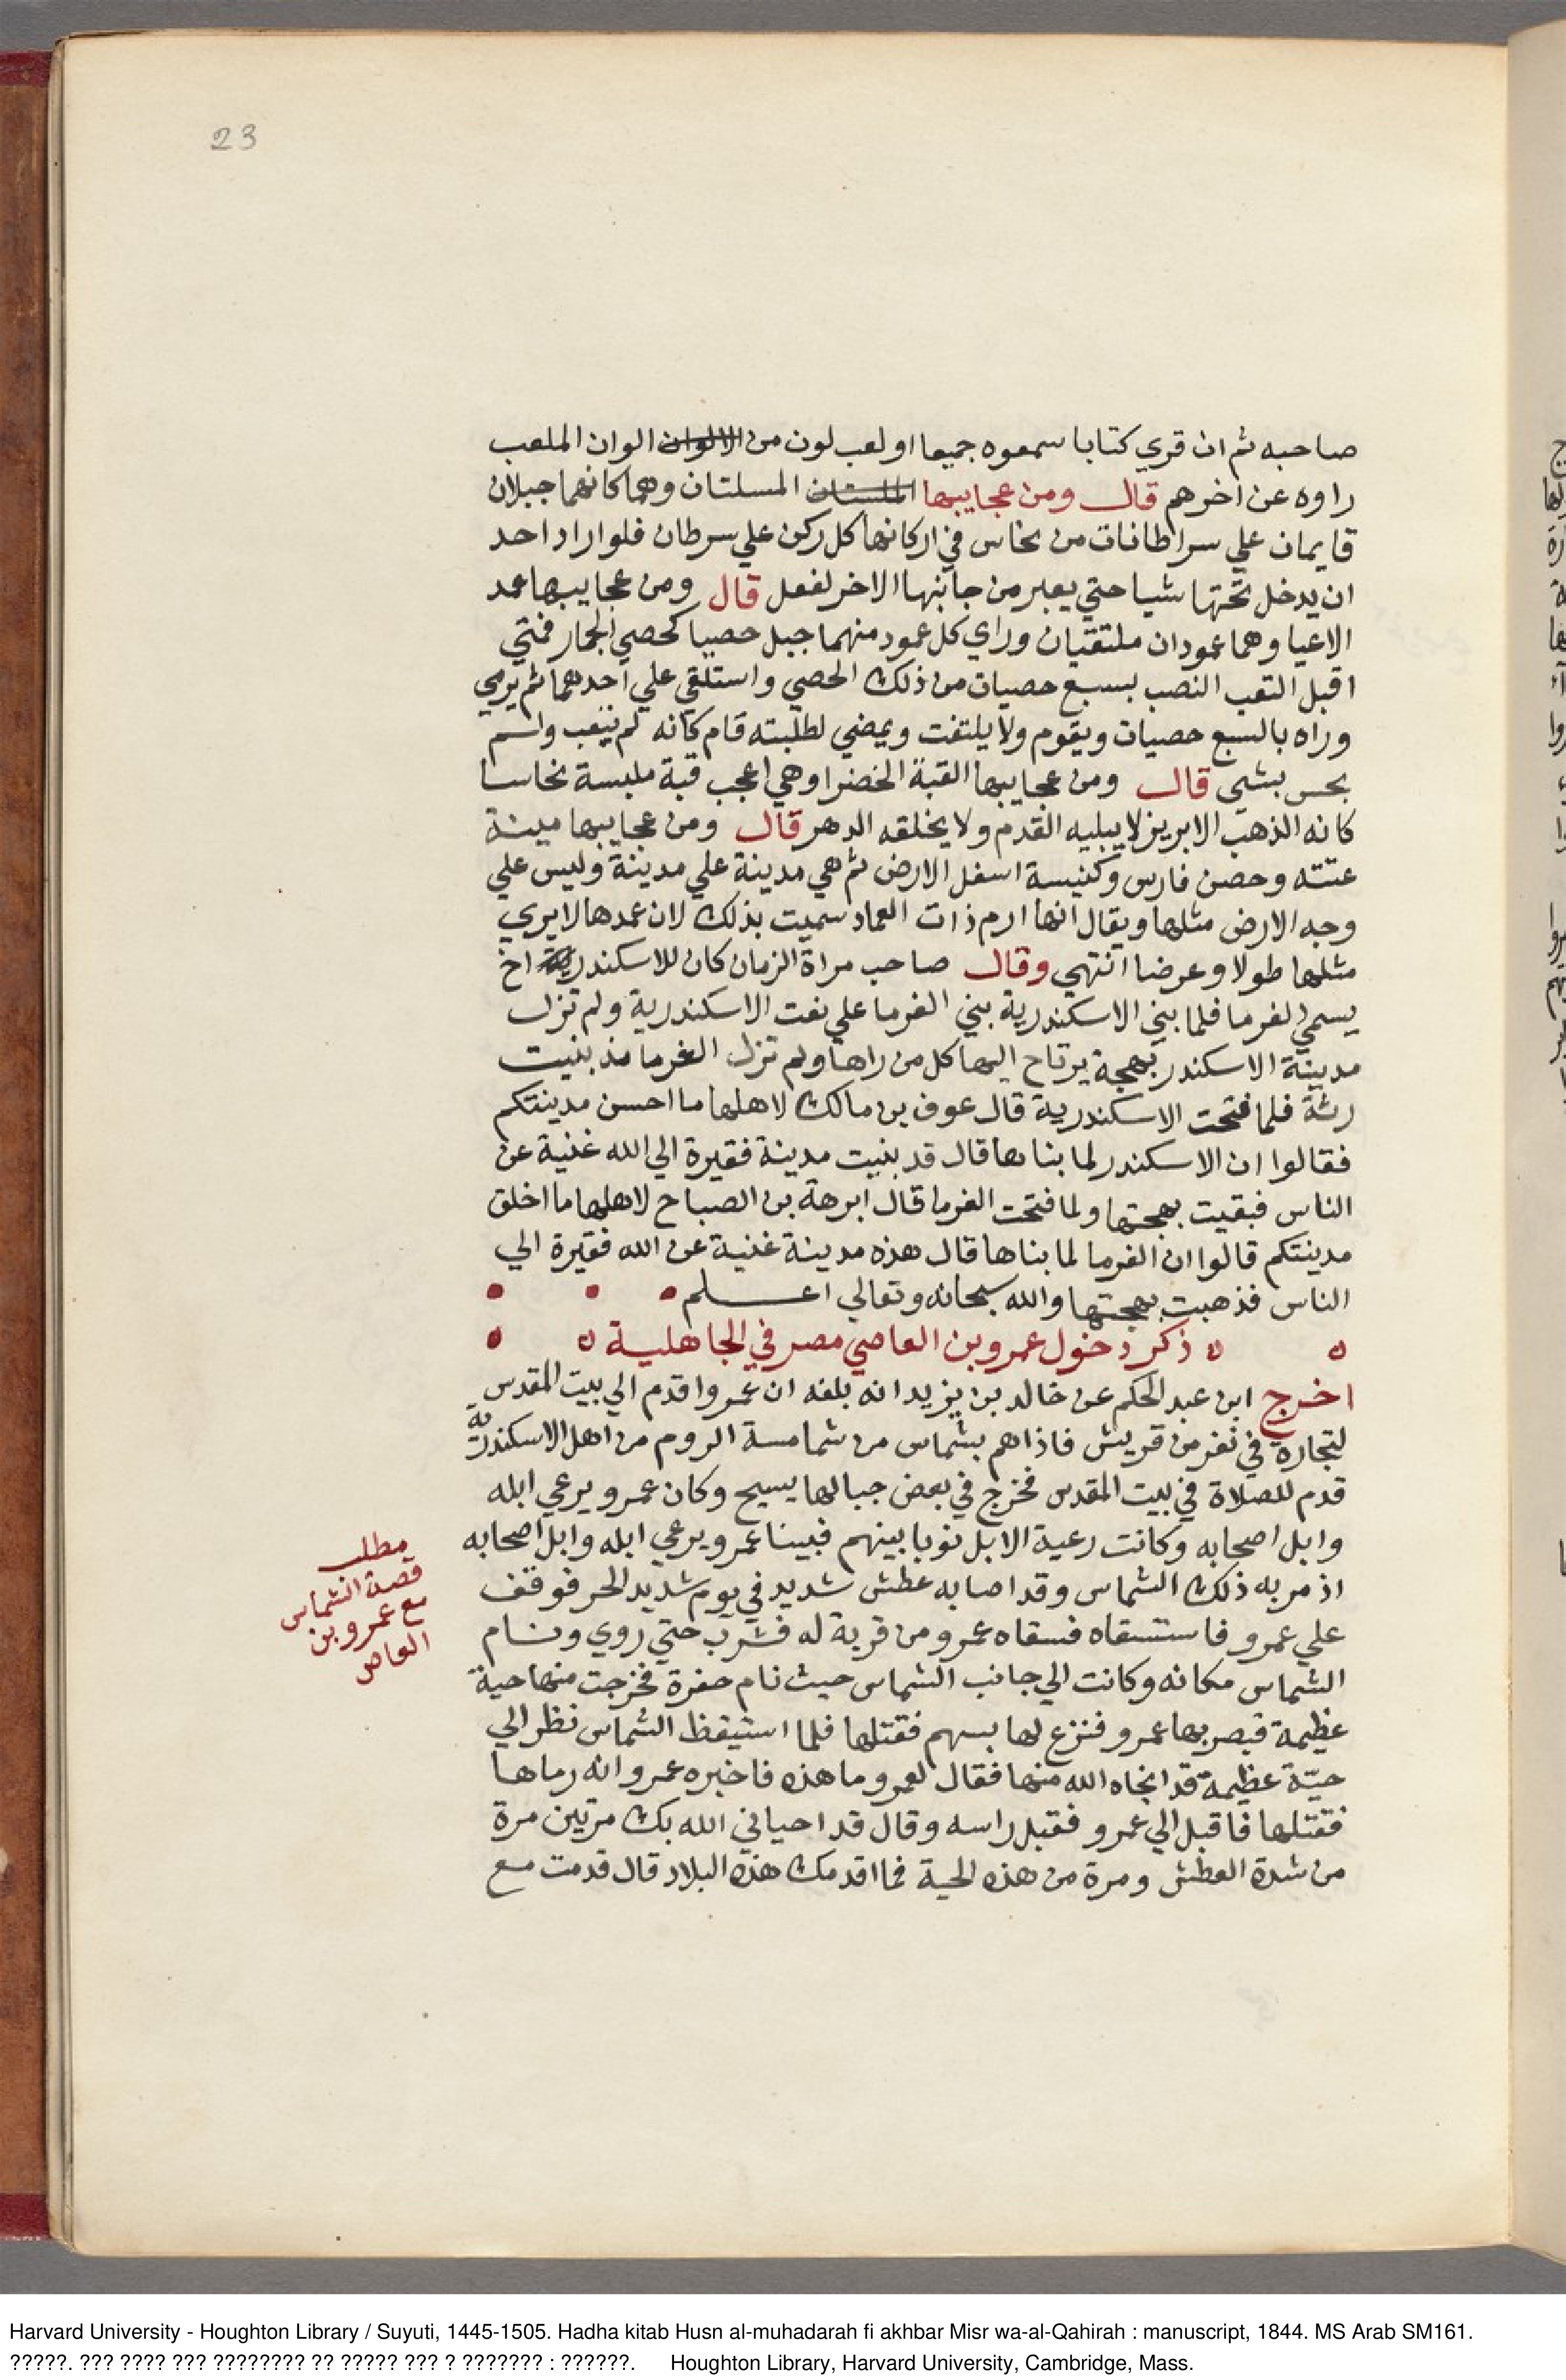 23
صاحبه ثم ان قري كتابا سمعوه جميعا او لعب لون من الالوان الوان الملعب
راوه عن اخرهم قال ومن عجايبها الملستان المسلتان وهما كانهما جبلان
قايمان علي سراطانات من نحاس في اركانها كل ركن علي سرطان فلو اراد احد
ان يدخل تحتها شيا حتي يعبر من جانبها الاخر لفعل قال ومن عجايبها عمد
الاعيا وهما عمودان ملتقيان وراي كل عمود منهما جبل حصبا كحصي الجمار فمتي
اقبل التعب النصب بسبع حصيات من ذلك الحصي واستلقي علي احدهما ثم يرمي
وراه بالسبع حصيات ويقوم ولا يلتفت ويمضي لطلبته قام كانه لم يتعب ولم
يحس بشي قال ومن عجايبها القبة الخضرا وهي اعجب قبة ملبسة نحاسا
كانه الذهب الابريز لا يبليه القدم ولا يخلقه الدهر قال ومن عجايبها مدينة
وحصن فارس وكنيسة اسفل الارض ثم هي مدينة علي مدينة وليس علي
وجه الارض مثلها ويقال انها ارم ذات العماد سميت بذلك لان عمدها لا يري
مثلها طولا وعرضا انتهي وقال صاحب مراة الزمان كان للاسكندر اخ
يسمي الفرما فلما بني الاسكندرية بني الفرما علي نعت الاسكندرية ولم تزل
مدينة الاسكندر بهجة يرتاح اليها كل من راها ولم تزل الفرما مذ بنيت
رثة فلما فتحت الاسكندرية قال عوف بن مالك لاهلها ما احسن مدينتكم
فقالوا ان الاسكندر لما بناها قال قد بنيت مدينة فقيرة الي الله غنية عن
الناس فبقيت بهجتها ولما فتحت الفرما قال ابرهة بن الصباح لاهلها ما اخلق
مدينتكم قالوا ان الفرما لما بناها قال هذه مدينة غنية عن الله فقيرة الي
الناس فذهبت بهجتها والله سبحانه وتعالي اعلم
ذكر دخول عمرو بن العاصي مصر في الجاهلية
اخرج ابن عبد الحكم عن خالد بن يزيد انه بلغه ان عمروا قدم الي بيت المقدس
لتجارة في نفر من قريش فاذاهم بشماس من شمامسة الروم من اهل الاسكندرية
قدم للصلاة في بيت المقدس فخرج في بعض جبالها يسيح وكان عمرو يرعي ابله
وابل اصحابه وكانت رعية الابل نوبا بينهم فبينا عمرو يرعي ابله وابل اصحابه
اذ مر به ذلك الشماس وقد اصابه عطش شديد في يوم شديد الحر فوقف
علي عمرو فاستسقاه فسقاه عمرو من قربة له فشرب حتي روي ونام
الشماس مكانه وكانت الي جانب الشماس حيث نام حفرة فخرجت منها حية
عظيمة فبصر بها عمرو فنزع لها بسهم فقتلها فلما استيقظ الشماس نظر الي
حية عظيمة قد انجاه الله منها فقال لعمرو ما هذه فاخبره عمرو انه رماها
فقتلها فاقبل الي عمرو فقبل راسه وقال قد احياني الله بك مرتين مرة
من شدة العطش ومرة من هذه الحية فما اقدمك هذه البلاد قال قدمت مع
مطلب
قصة الشماس
مع عمرو بن
العاص
Harvard University - Houghton Library / Suyuti, 1445-1505. Hadha kitab Husn al-muhadarah fi akhbar Misr wa-al-Qahirah : manuscript, 1844. MS Arab SM161.
?????. ??? ???? ??? ???????? ?? ????? ??? ? ??????? : ??????. Houghton Library, Harvard University, Cambridge, Mass.